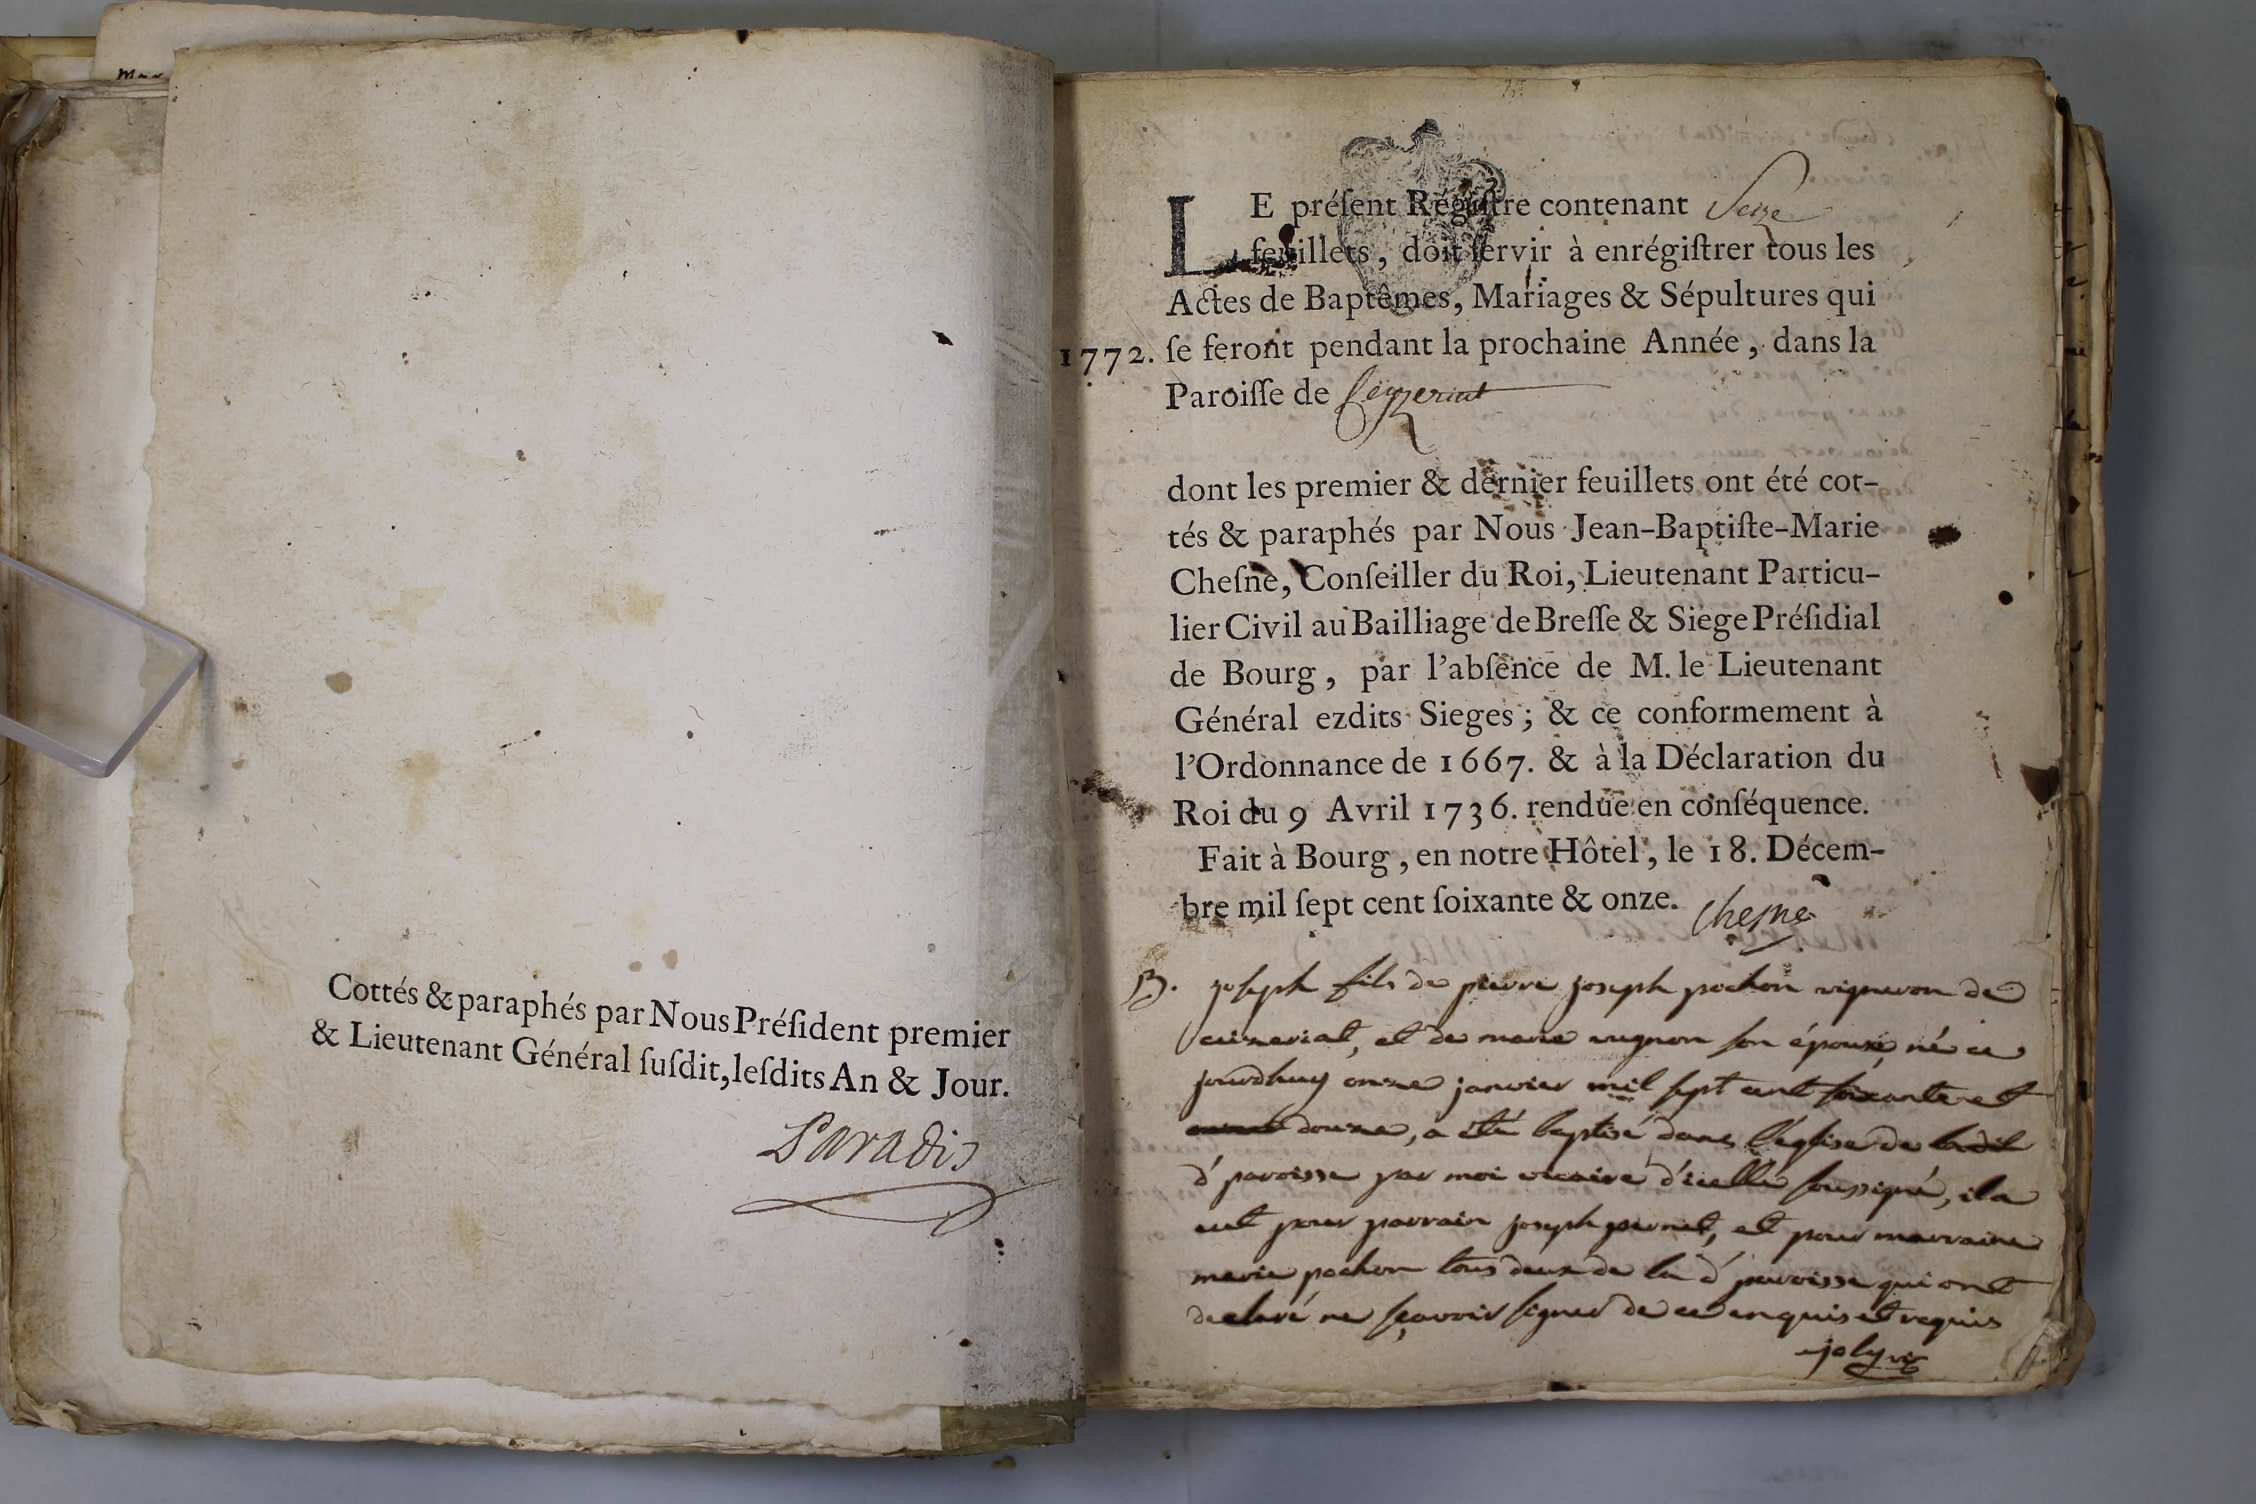 Cottés & paraphés par Nous Préſident premier
& Lieutenant Général ſuſdit, leſdits An & Jour.
Paradis
LE préſent Régiſtre contenant Seize
feuillets, doit ſervir à enrégiſtrer tous les
Actes de Baptêmes, Mariages & Sépultures qui
1772. ſe feront pendant la prochaine Année, dans la
Paroiſſe de Ceyzeriat
dont les premier & dernier feuillets ont été cot-
tés & paraphés par Nous Jean-Baptiſte-Marie
Cheſne, Conſeiller du Roi, Lieutenant Particu-
lier Civil au Bailliage de Breſſe & Siege Préſidial
de Bourg, par l'abſence de M. le Lieutenant
Général ezdits Sieges; & ce conformement à
l'Ordonnance de 1667. & à la Déclaration du
Roi du 9 Avril 1736. rendue en conſéquence.
Fait à Bourg, en notre Hôtel, le 18. Décem-
bre mil ſept cent ſoixante & onze. Chesne
B. joseph fils de pierre joseph pochon vigneron de
ceizeriat, et de marie son épouse né ce
jourdhuy onze janvier mil sept cent soixante et
douze, a été baptisé dans l'église de ladit
d' paroisse par moi vicaire d'icelle soussigné, il a
eut pour parrain joseph et pour marraine
marie pochon tous deux de la d' paroisse qui ont
declaré ne sçavoir signer de ce enquis et requis
joly vic